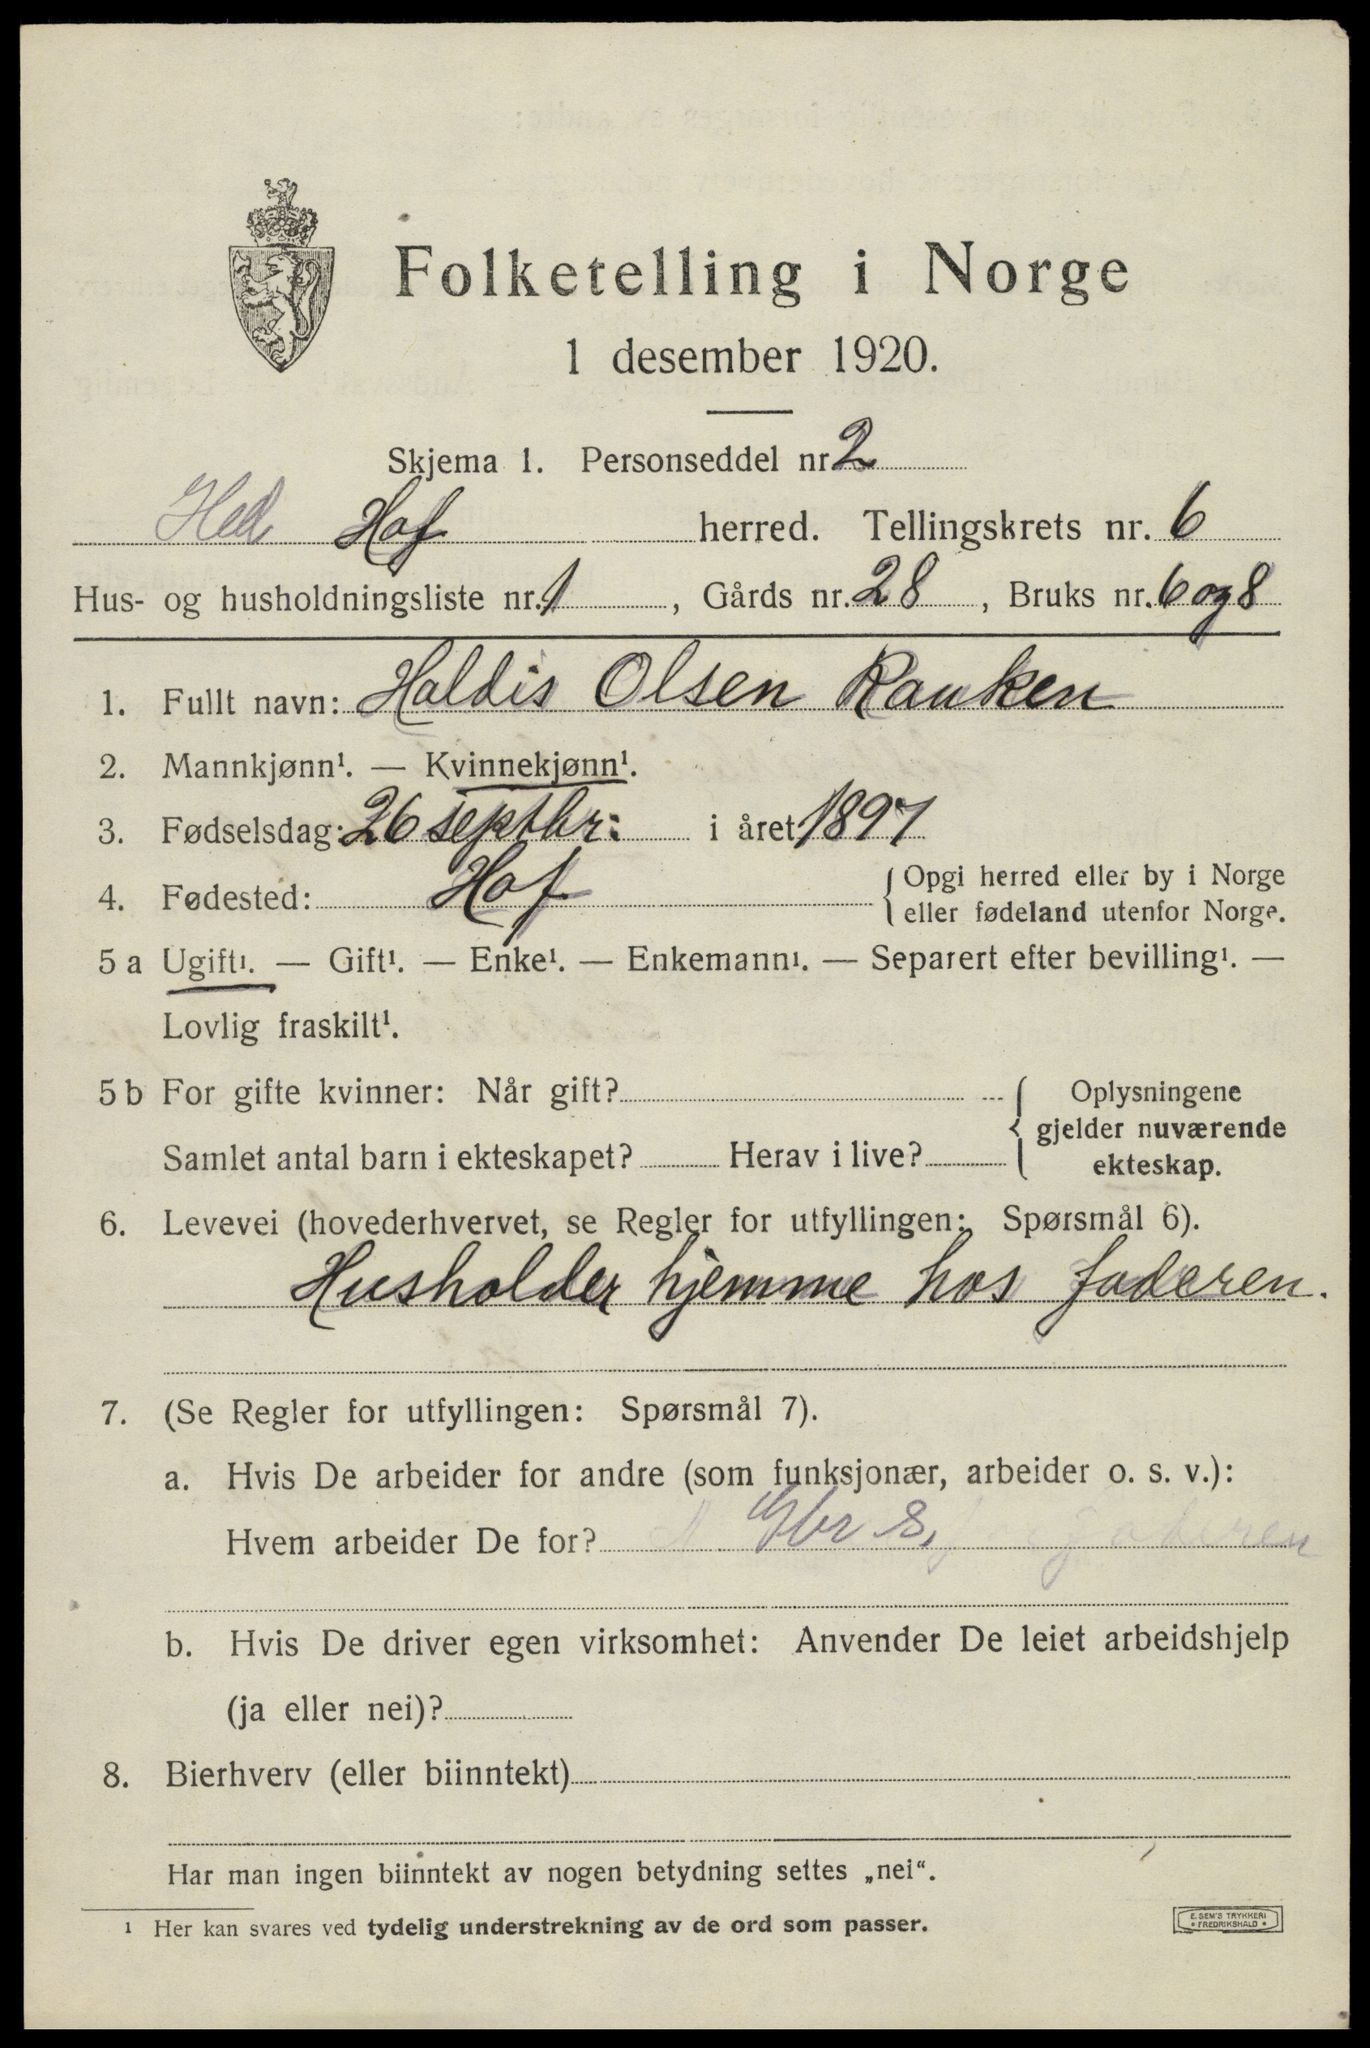 Folketelling i Norge
1 desember 1920.
Skjema 1. Personseddel nr 2
Hed Hof herred. Tellingskrets nr. 6
Hus- og husholdningsliste nr. 1, Gårds nr. 28, Bruks nr. 6 og 8
1. Fullt navn: Haldis Olsen Rauken
2. Mannkjønn¹. — Kvinnekjønn¹.
3. Fødselsdag: 26 septbr: i året 1897
4. Fødested: Hof
{ Opgi herred eller by i Norge
eller fødeland utenfor Norge.
5 a Ugift¹. — Gift¹. — Enke¹. — Enkemann¹. — Separert efter bevilling¹. —
Lovlig fraskilt¹.
5 b For gifte kvinner: Når gift?
Samlet antal barn i ekteskapet? Herav i live?
{ Oplysningene
gjelder nuværende
ekteskap.
6. Levevei (hovederhvervet, se Regler for utfyllingen: Spørsmål 6).
Husholder hjemme hos faderen.
7. (Se Regler for utfyllingen: Spørsmål 7).
a. Hvis De arbeider for andre (som funksjonær, arbeider o. s. v.):
Hvem arbeider De for? Gbr s, Faderen
b. Hvis De driver egen virksomhet: Anvender De leiet arbeidshjelp
(ja eller nei)?
8. Bierhverv (eller biinntekt)
Har man ingen biinntekt av nogen betydning settes „nei“.
¹ Her kan svares ved tydelig understrekning av de ord som passer.
E. SEM'S TRYKKERI
• FREDRIKSHALD •